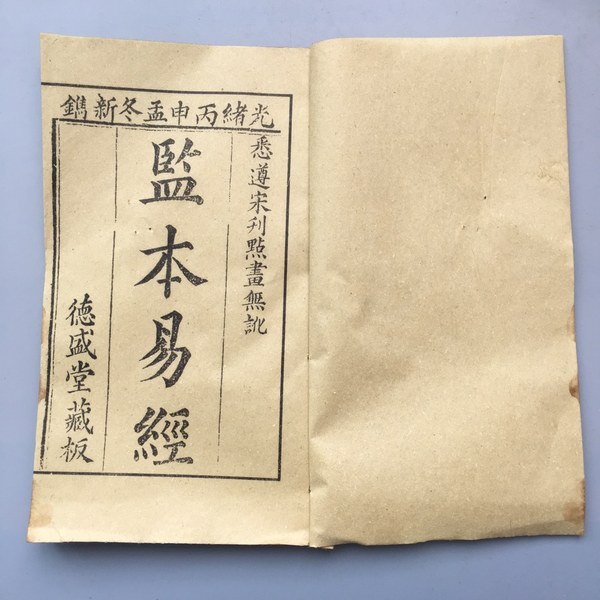 光緒丙申孟冬新鐫
悉遵宋刋點畫無訛
監本易經
德盛堂藏板